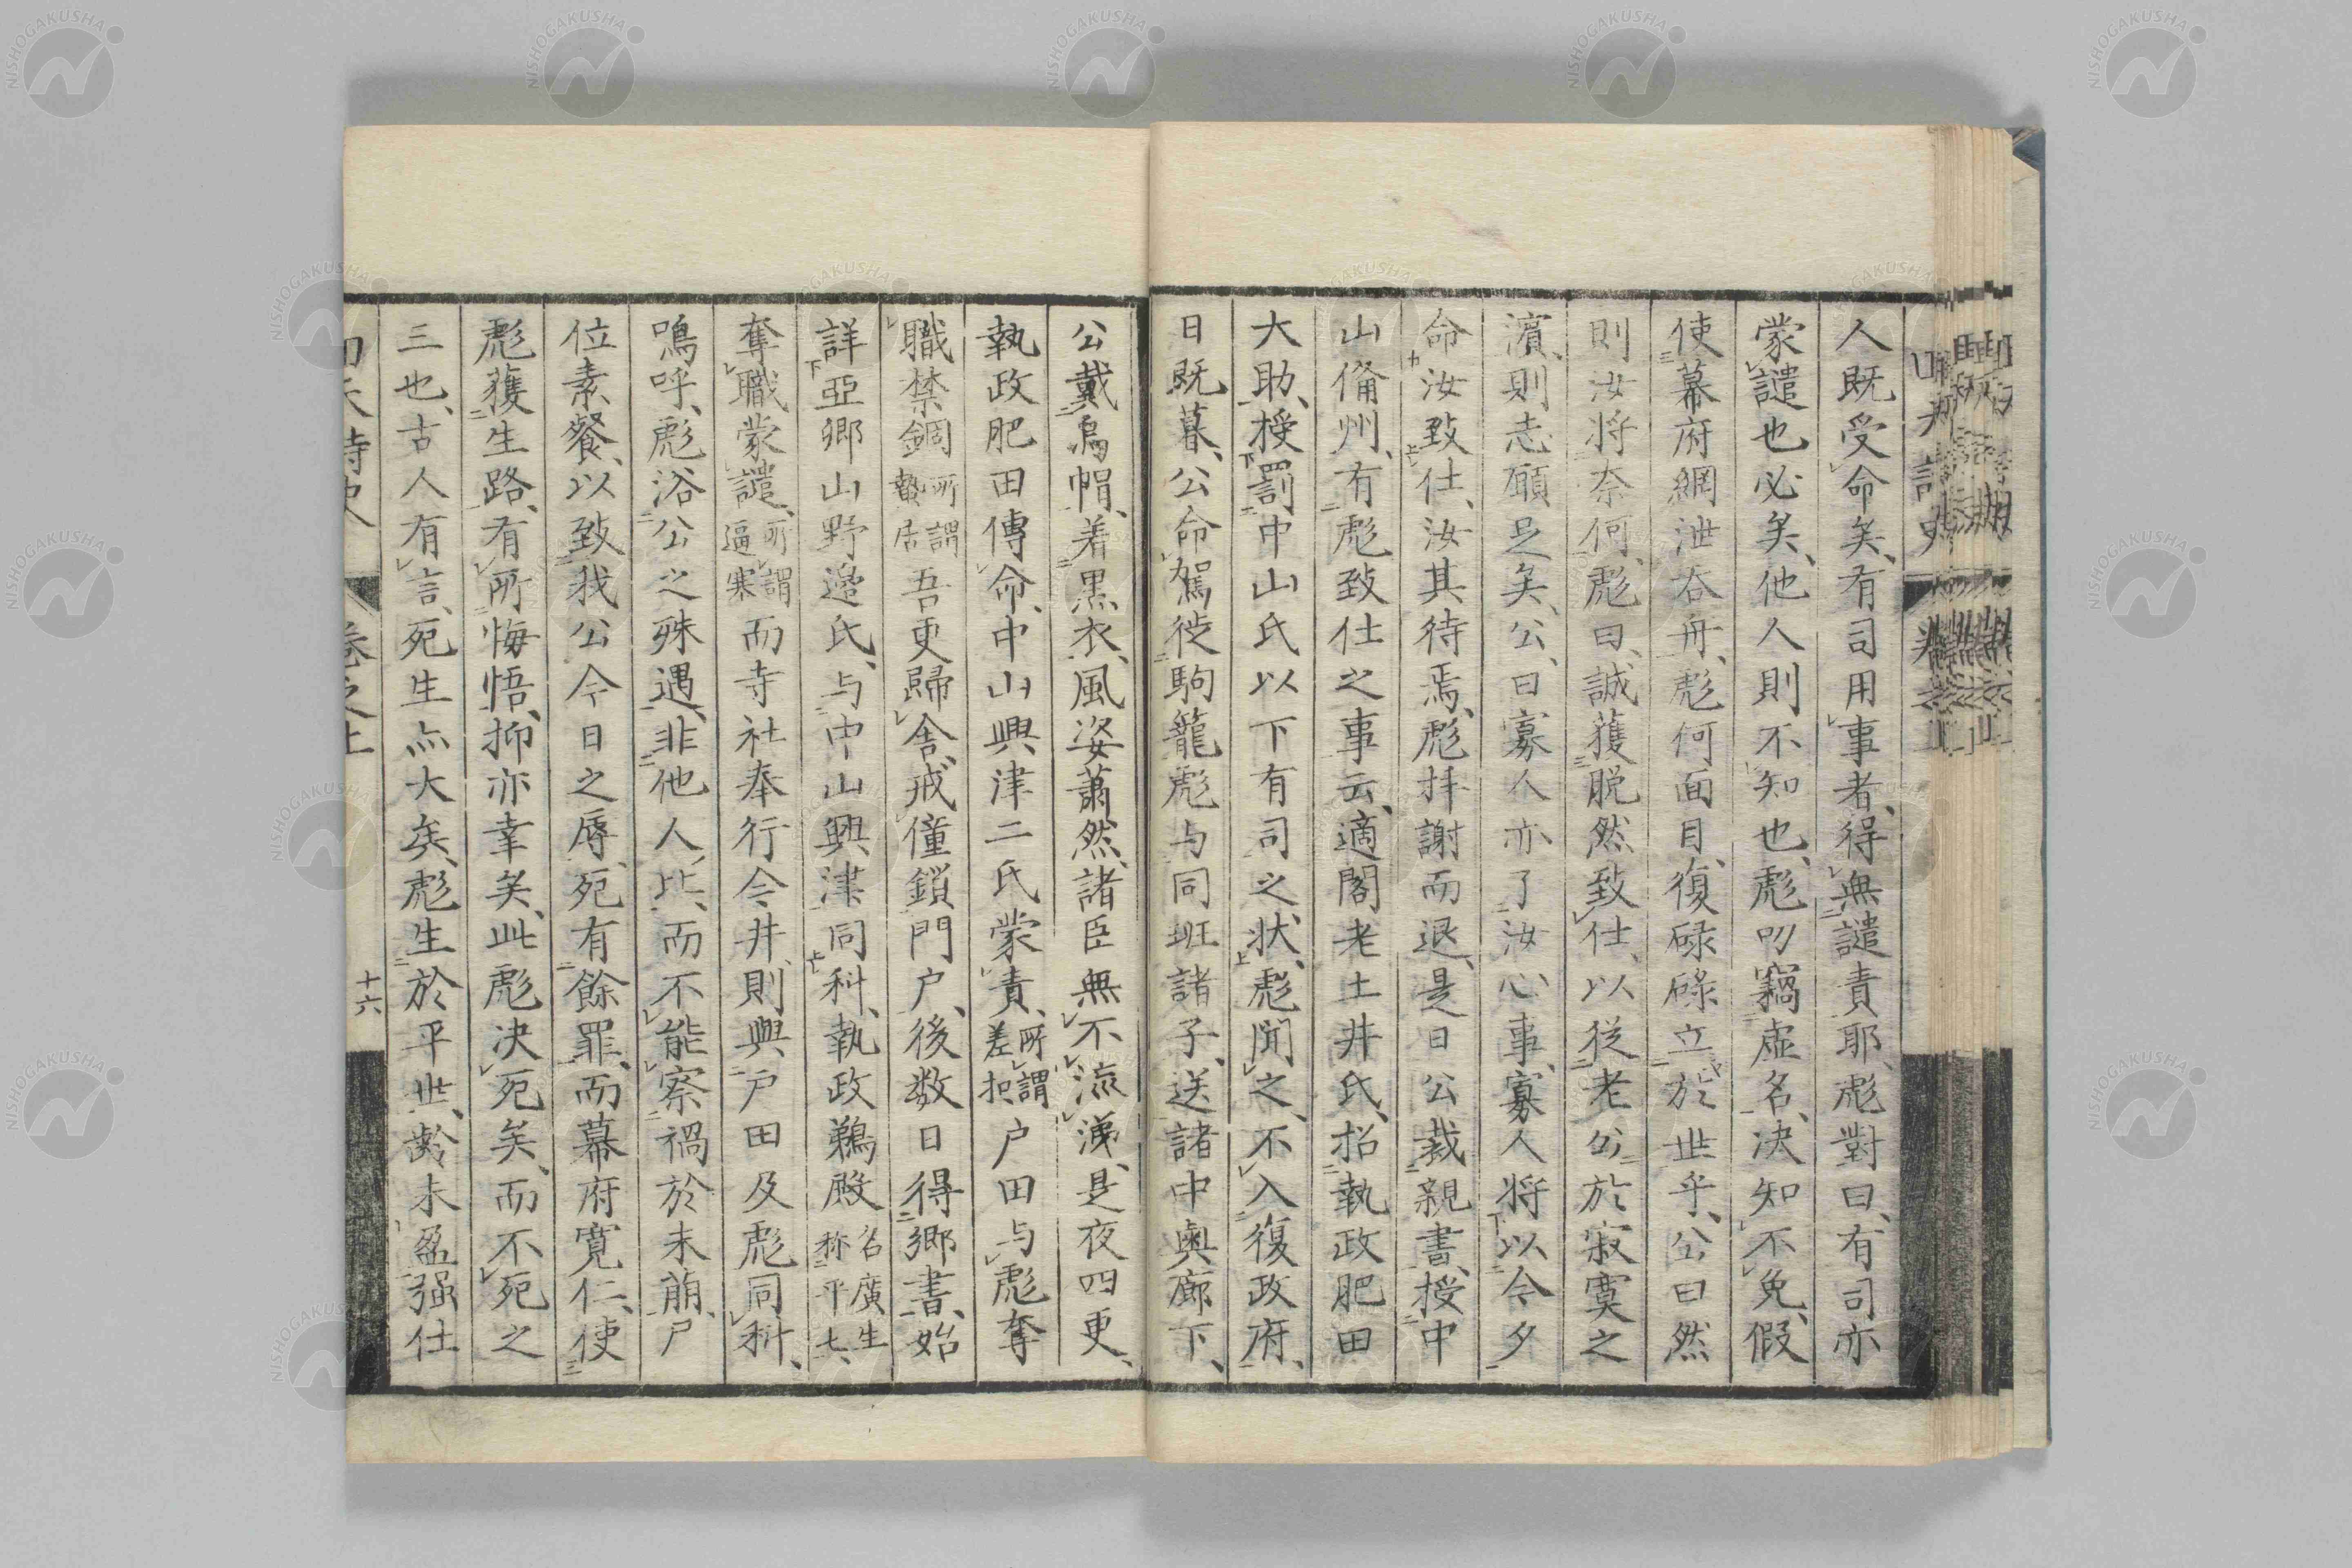 人既受命矣、有司用事者、得無譴責耶、彪對曰、有司亦
蒙譴也必矣、他人則不知也、彪叨竊虛名、决知不免、假
使幕府網泄吞舟、彪何面目、復碌碌立於世乎、公曰然
則汝將奈何、彪曰、誠獲脱然致仕、以從老公於寂寞之
濱、則志願足矣、公曰寡人亦了汝心事、寡人將以今夕
命汝致仕、汝其待焉、彪拝謝而退、是日公裁親書、授中
山備州、有彪致仕之事云、適閣老土井氏、招執政肥田
大助、授罰中山氏以下有司之状、彪聞之、不入復政府、
日既暮、公命駕從駒籠彪与同班諸子、送諸中奥廊下、
公戴烏帽、着黒衣、風姿蕭然、諸臣無不流涕、是夜四更、
執政肥田傳命、中山興津二氏蒙責、所謂差扣戸田与彪奪
職禁錮所謂蟄居吾更歸舎、戒僮鎖門户、後数日得郷書、始
詳亞郷山野邉氏、与中山興津同科、執政鵜殿名廣生称平七、
奪職蒙譴、所謂逼塞而寺社奉行今井、則與戸田及彪同科、
鳴呼、彪浴公之殊遇、非他人比、而不能察禍於未萠、尸
位素餐、以致我公今日之辱、死有餘罪、而幕府寛仁、使
彪獲生路、有所悔悟、抑亦幸矣、此彪决死矣、而不死之
三也、古人有言、死生亦大矣、彪生於平世、齢未盈强仕
回天詩史 卷之上 十六